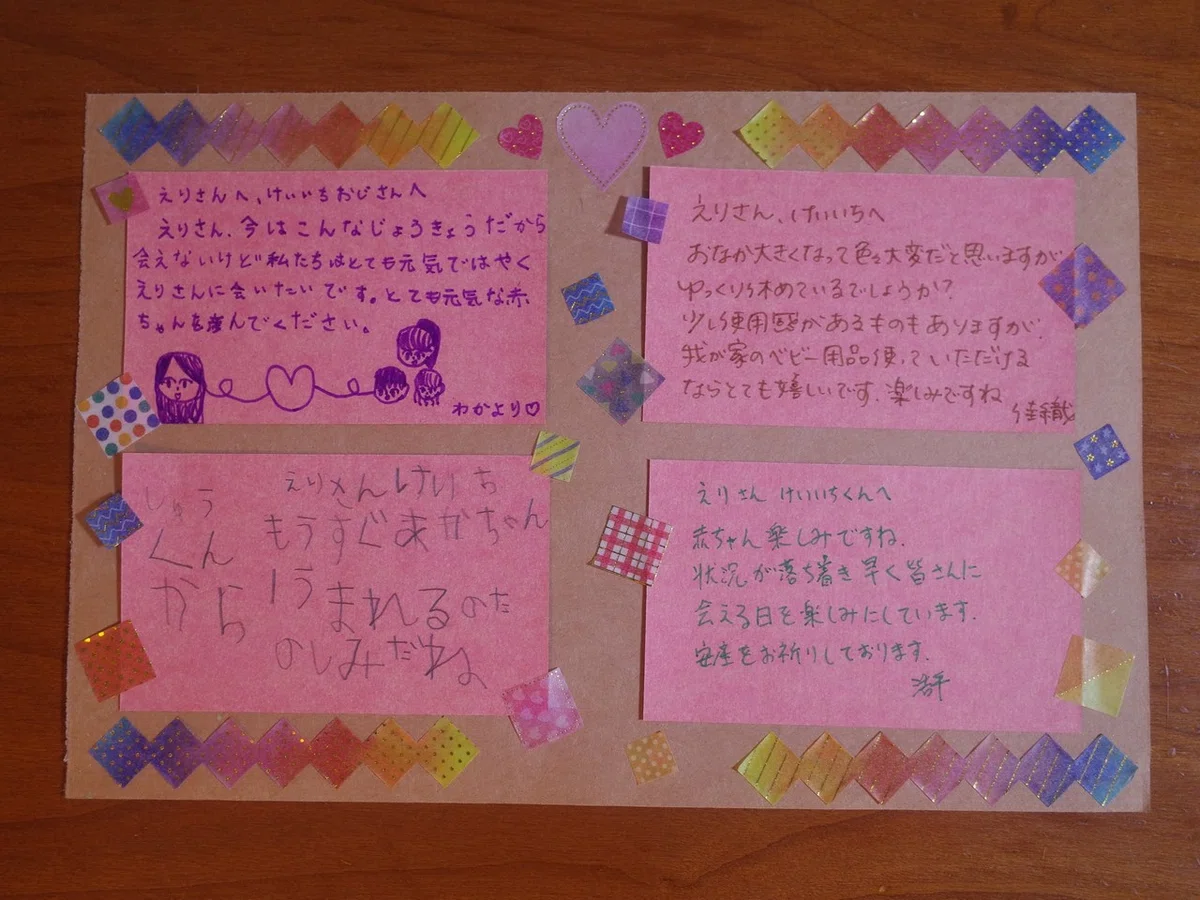 えりさんへ、けいいちおじさんへ
えりさん、今はこんなじょうきょうだから
会えないけど私たちはとても元気ではやく
えりさんに会いたいです。とても元気な赤
ちゃんを産んでください。
わかより♡
えりさん、けいいちへ
おなか大きくなって色々大変だと思いますが
ゆっくり休めているでしょうか?
少し使用感があるものもありますが、
我が家のベビー用品使っていただける
ならとても嬉しいです。楽しみですね
佳織
えりさんけいいち
もうすぐあかちゃん
うまれるのた
のしみだね
しゅう
くん
から
えりさん けいいちくんへ
赤ちゃん楽しみですね。
状況が落ち着き早く皆さんに
会える日を楽しみにしています。
安産をお祈りしております。
浩平